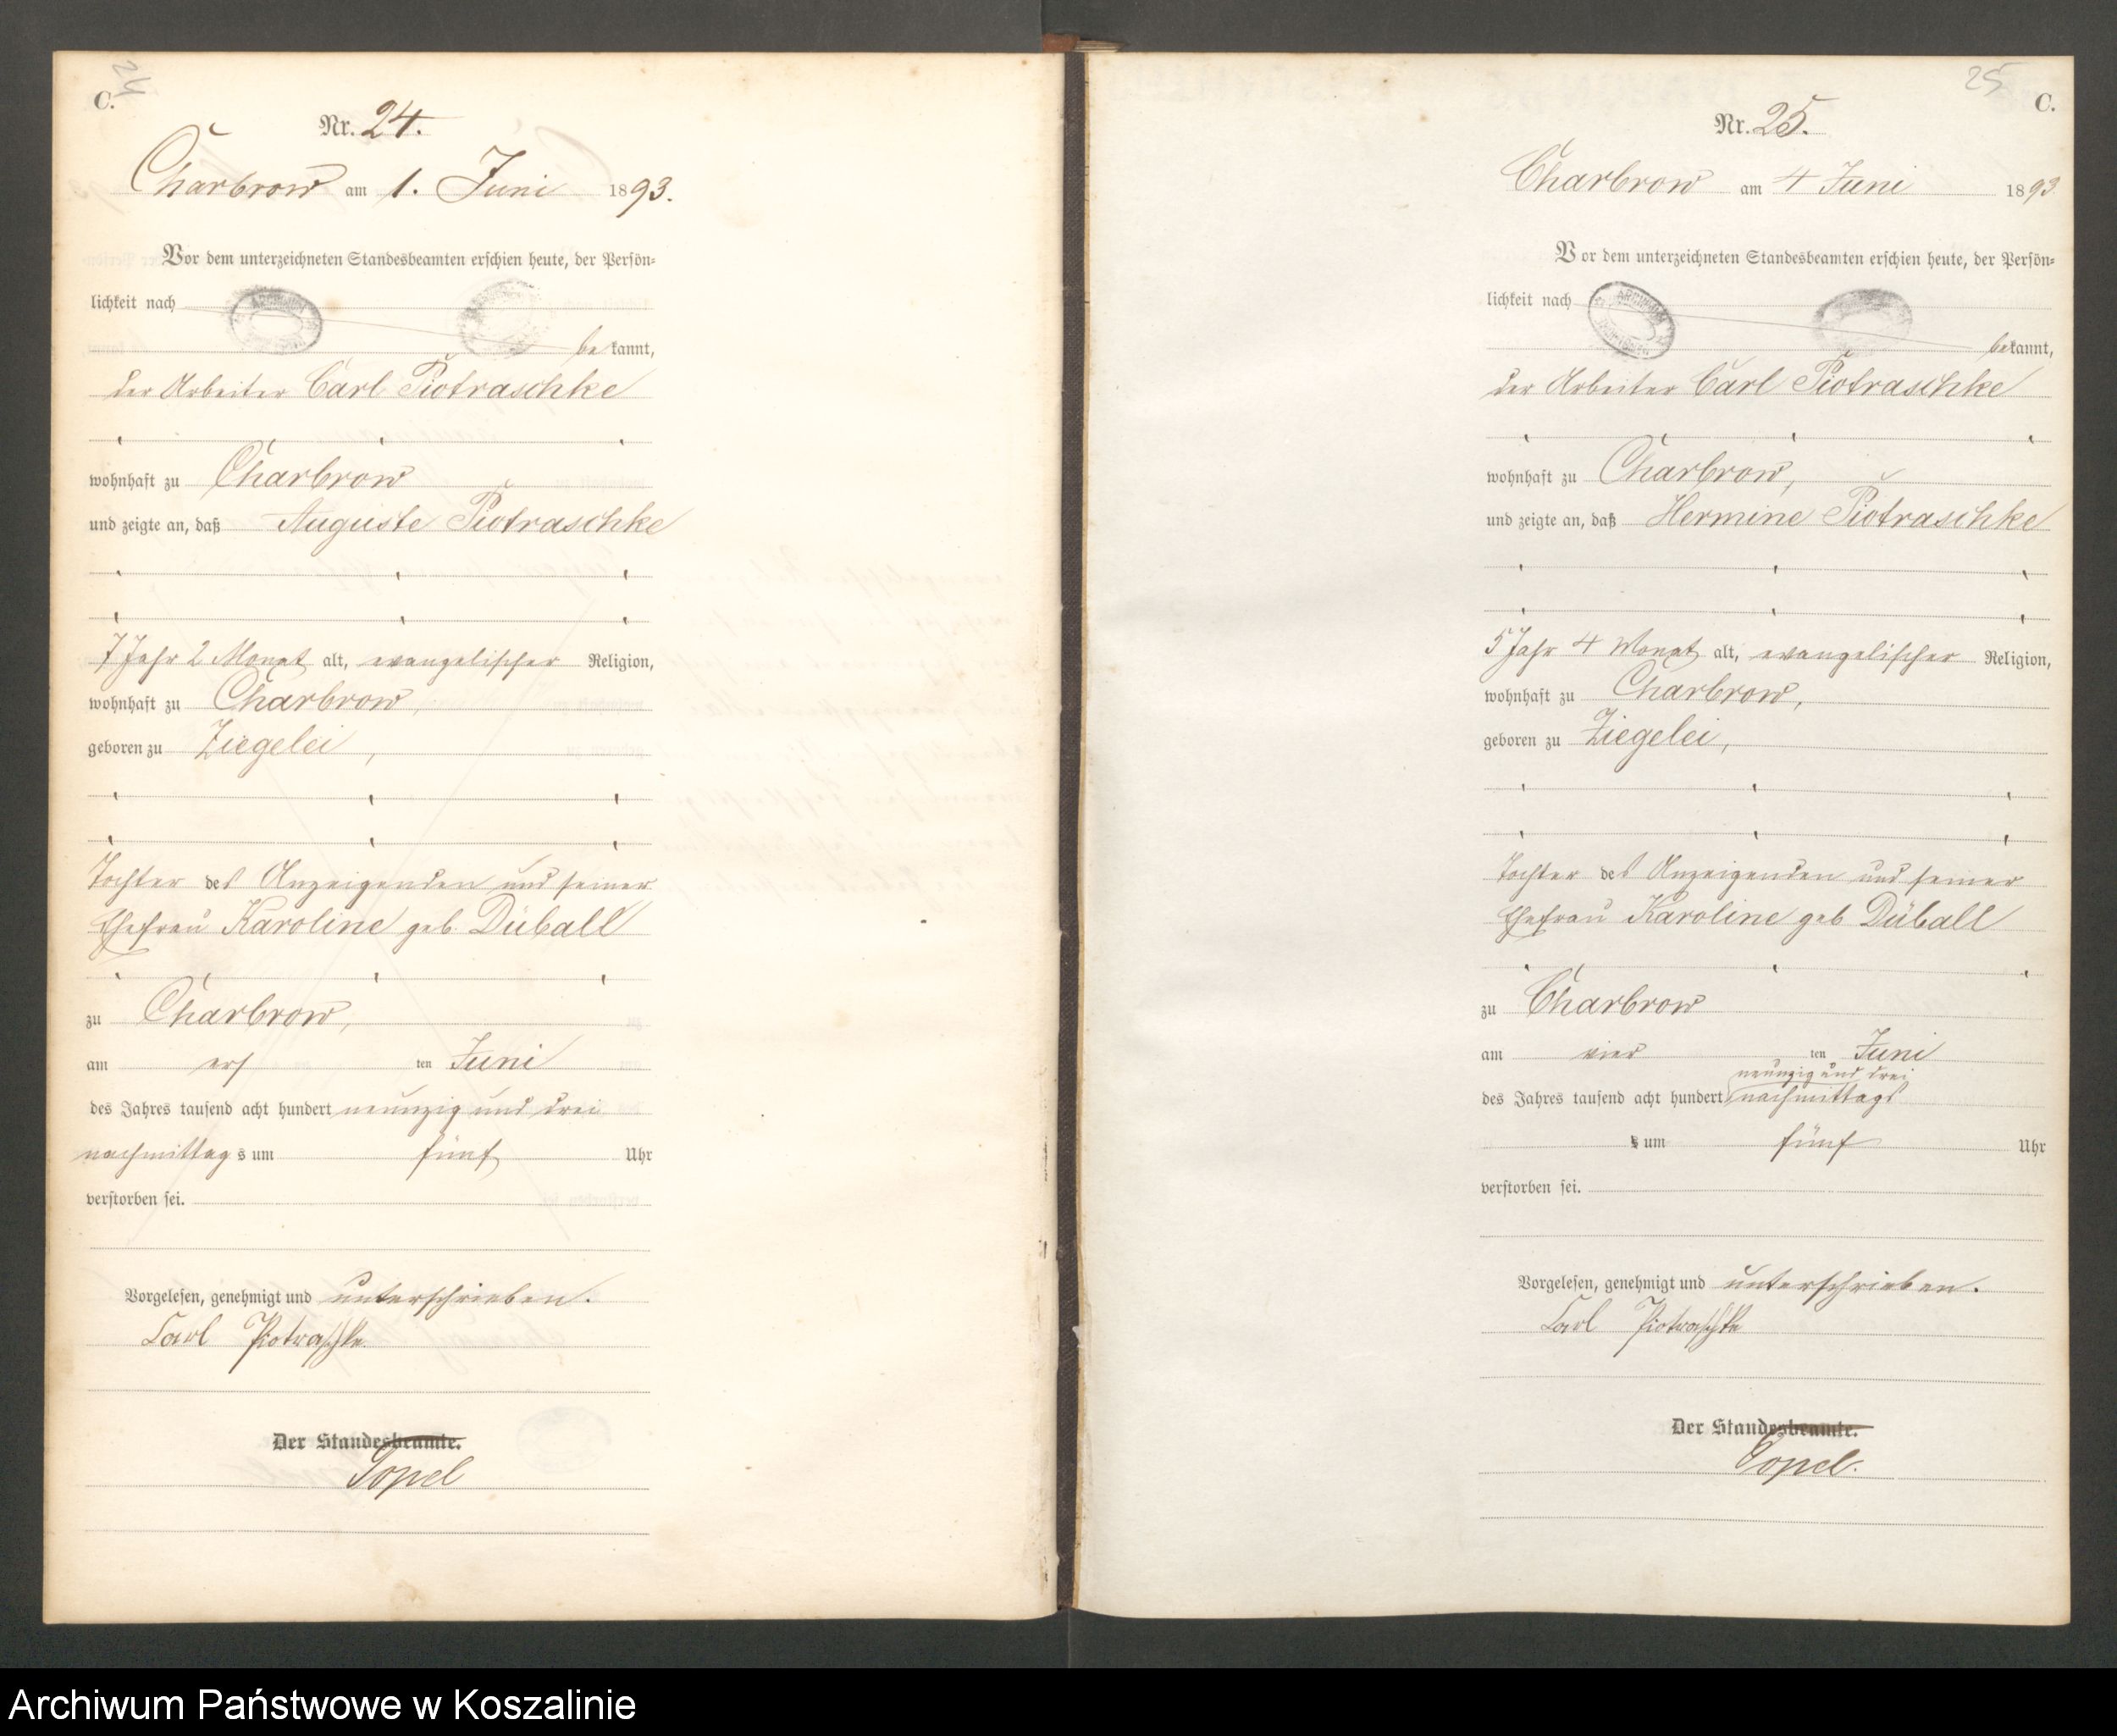 24
C.
Nr. 24.
Charbrow am 1. Juni 1893.
Vor dem unterzeichneten Standesbeamten erschien heute, der Persön=
lichkeit nach
bekannt,
der Arbeiter Carl Piotraschke
wohnhaft zu Charbrow
und zeigte an, daß Auguste Piotraschke
7 Jahr 2 Monat alt, evangelischer Religion,
wohnhaft zu Charbrow,
geboren zu Ziegelei,
Tochter des Anzeigenden und seiner
Ehefrau Karoline geb. Düball
zu Charbrow,
am ers ten Juni
des Jahres tausend acht hundert neunzig und drei
nachmittags um fünf Uhr
verstorben sei.
Vorgelesen, genehmigt und unterschrieben.
Carl Piotraschke.
Der Standesbeamte.
Topel
25
C.
Nr. 25.
Charbrow am 4 Juni 1893
Vor dem unterzeichneten Standesbeamten erschien heute, der Persön=
lichkeit nach
bekannt,
der Arbeiter Carl Piotraschke
wohnhaft zu Charbrow,
und zeigte an, daß Hermine Piotraschke
5 Jahr 4 Monat alt, evangelischer Religion,
wohnhaft zu Charbrow,
geboren zu Ziegelei,
Tochter des Anzeigenden und seiner
Ehefrau Karoline geb Düball
zu Charbrow
am vier ten Juni
neunzig und drei
des Jahres tausend acht hundert nachmittags
s um fünf Uhr
verstorben sei.
Vorgelesen, genehmigt und unterschrieben.
Carl Piotraschke
Der Standesbeamte.
Topel.
Archiwum Państwowe w Koszalinie